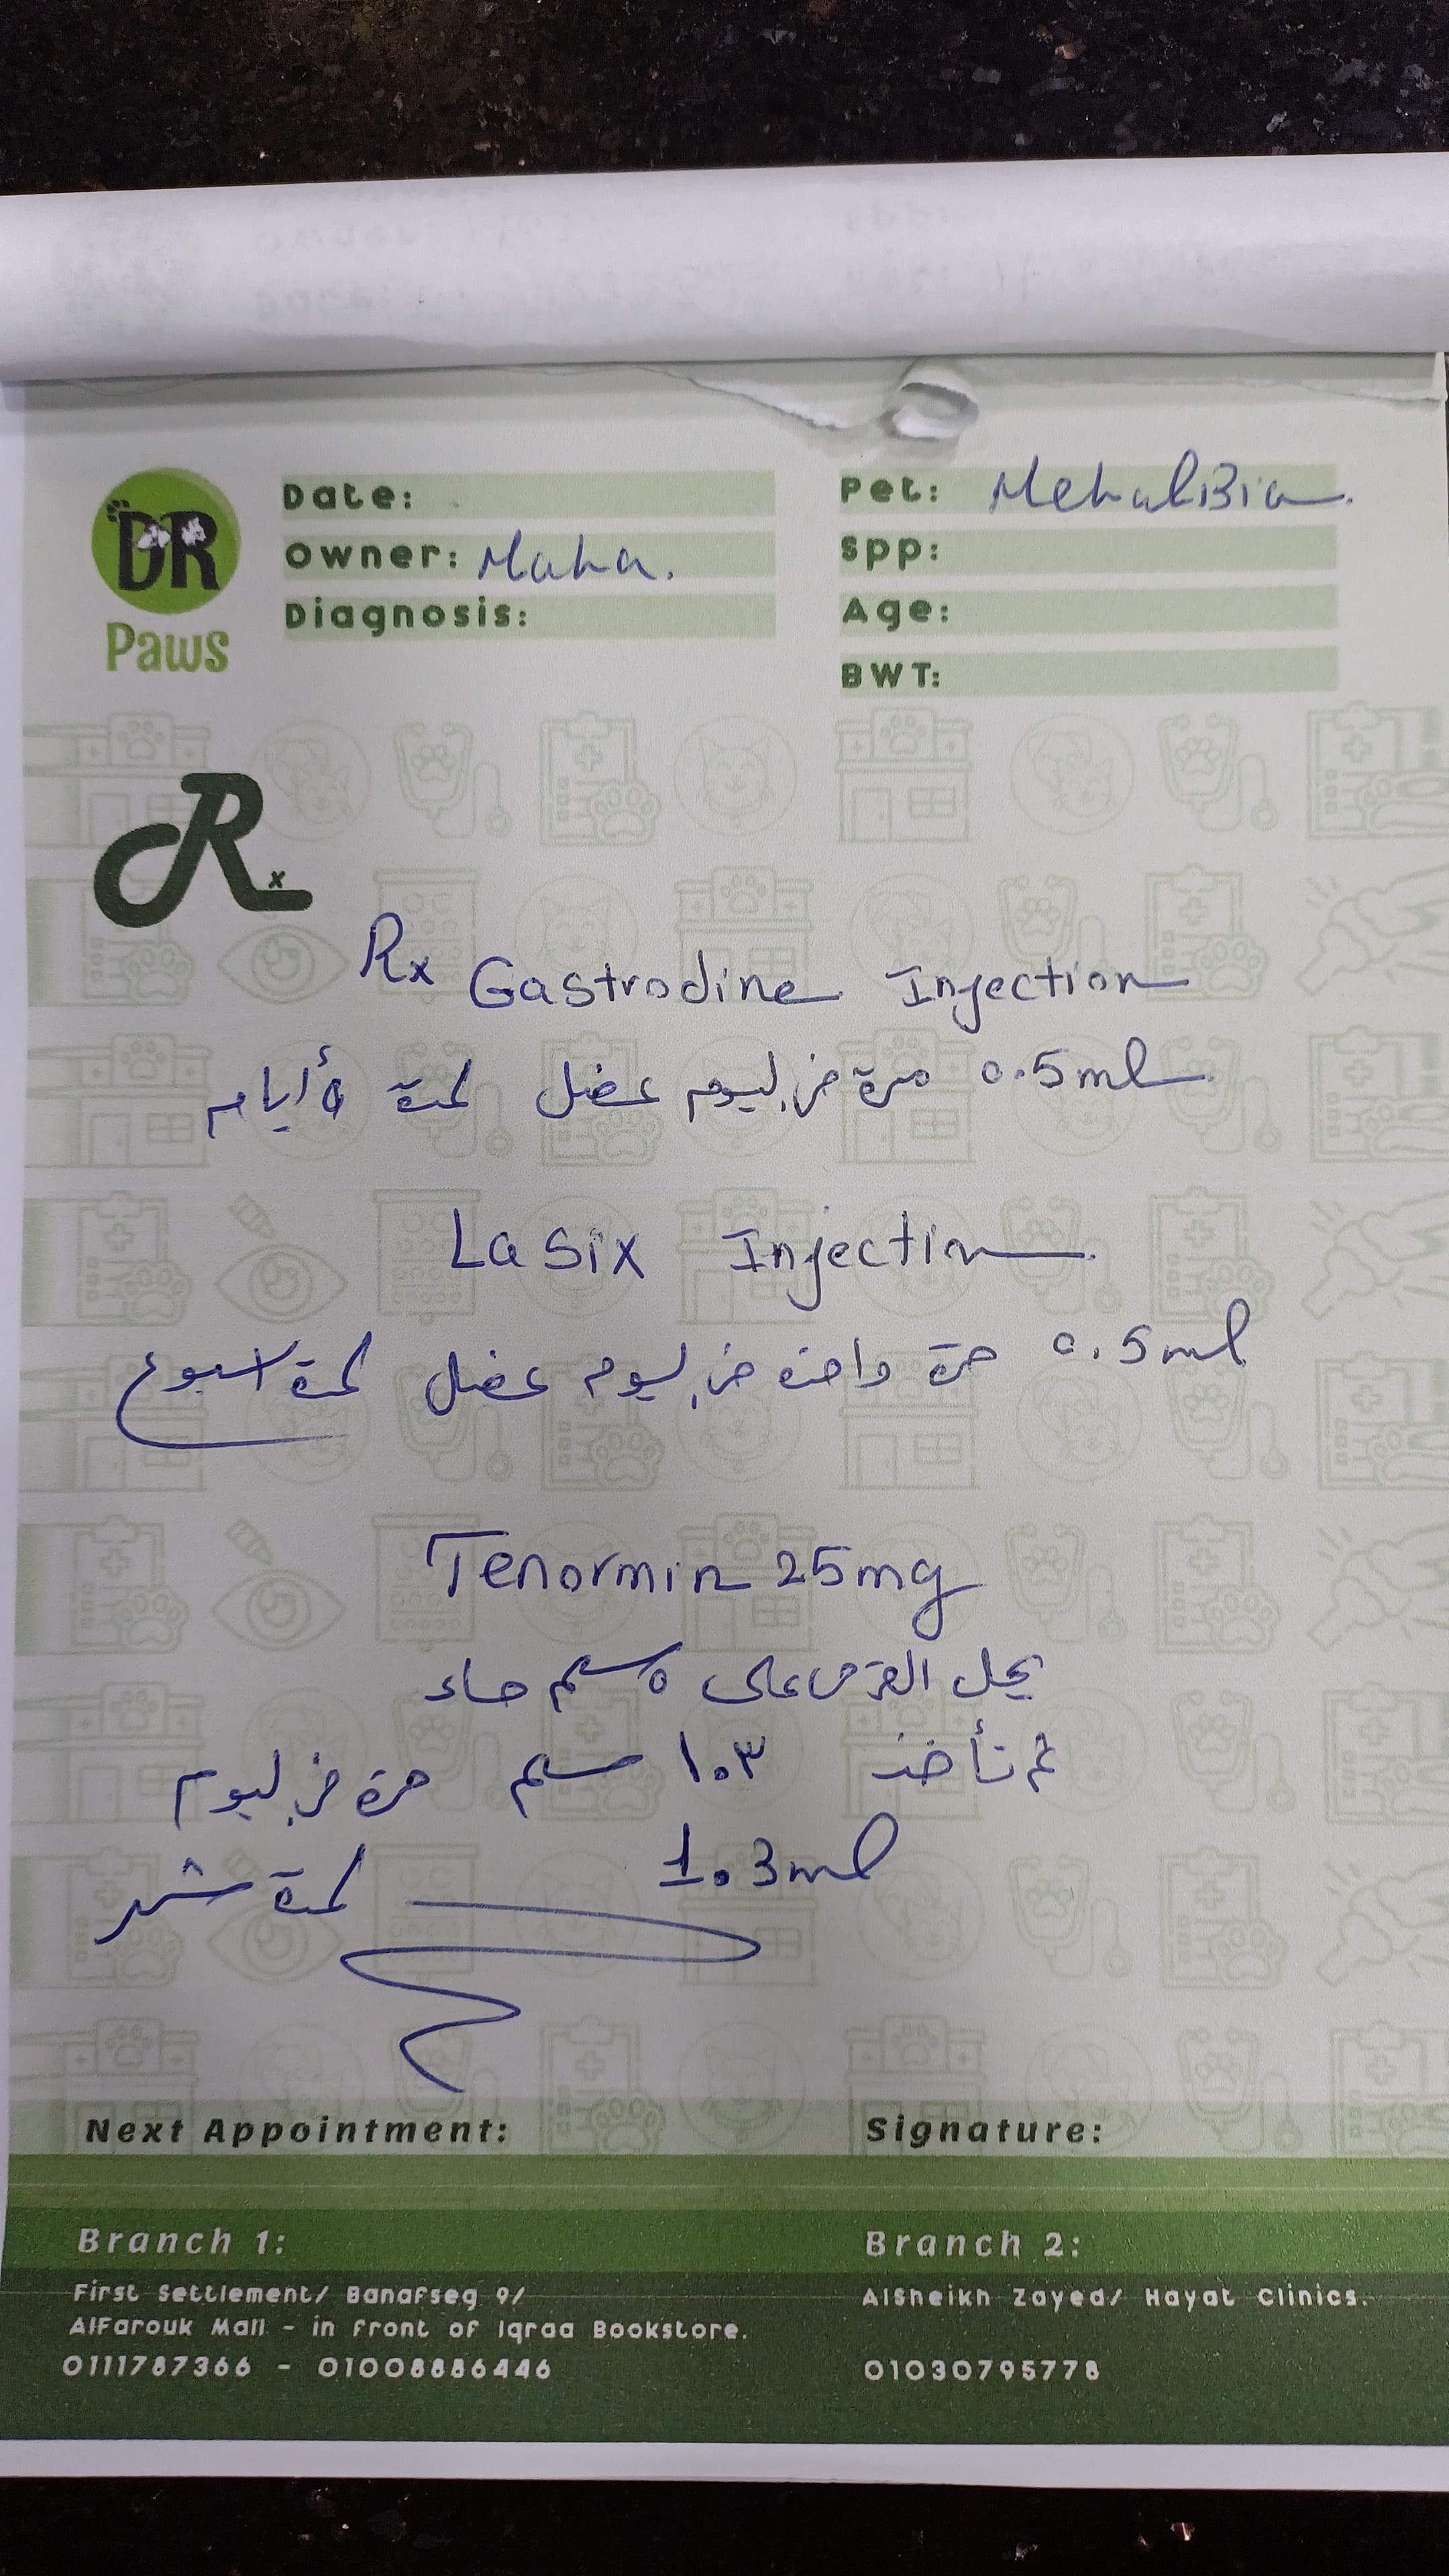 DR
Paws
Date:
Owner: Maha.
Diagnosis:
Pet: MehalBia.
Spp:
Age:
BWT:
Rx
Rx Gastrodine Injection
0.5ml مرة في اليوم عضل لمدة ٥ أيام
Lasix Injection
0.5ml مرة واحدة في اليوم عضل لمدة اسبوع
Tenormin 25mg
يحل القرص على ٥ سم ماء
ثم تأخذ ١.٣ سم مرة في اليوم
1.3ml لمدة شهر
Next Appointment:
Signature:
Branch 1:
First Settlement/ Banafseg 9/
AlFarouk Mall - in front of Iqraa Bookstore.
0111787366 - 01008886446
Branch 2:
AlSheikh Zayed/ Hayat Clinics.
01030795778